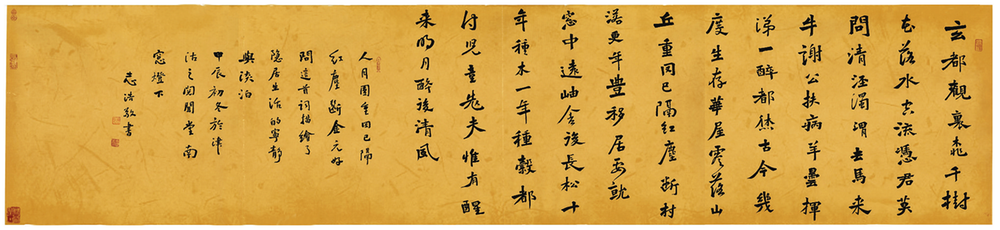 玄都觀裏桃千樹
花落水空流憑君莫
問清涇濁渭去馬來
牛謝公扶病羊曇揮
涕一醉都休古今幾
度生存華屋零落山
丘重岡已隔紅塵斷村
落更年豐移居要就
窗中遠岫舍後長松十
年種木一年種穀都
付兒童老夫惟有醒
來明月醉後清風
人月圓重岡已隔
紅塵斷金元好
問這首詞描繪了
隱居生活的寧靜
與淡泊
甲辰初冬於津
沽之閒堂南
窗燈下
志浩敬書